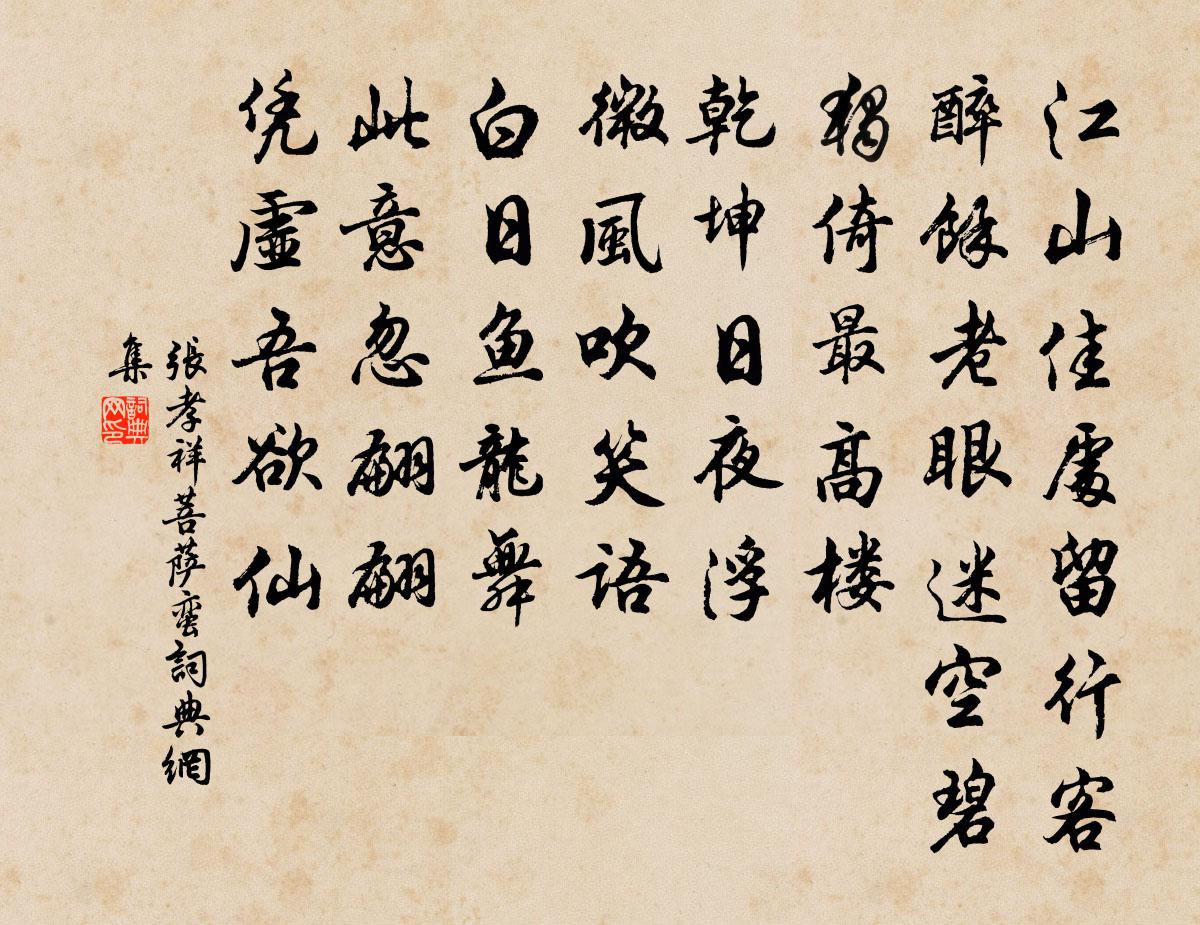 江山佳處留行客
醉餘老眼迷空碧
獨倚最高楼
乾坤日夜浮
微風吹笑語
白日鱼龍舞
此意忽翩翩
凭虛吾欲仙
張孝祥菩萨蛮詞典網
集
詞典网印